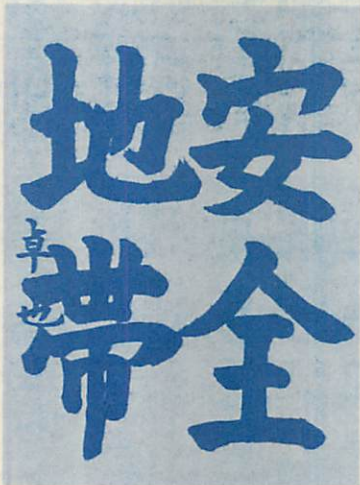 安全
地帯
卓也